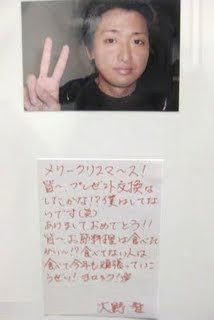 メリークリスマ〜ス!
皆〜、プレゼント交換は
したかな!?僕はしてな
いです(笑)
あけましておめでとう!!
皆〜お節料理は食べた
かい〜!?食べてない人は
食べて今年も頑張っていこ
うぜい!ヨロスク!
大野 智